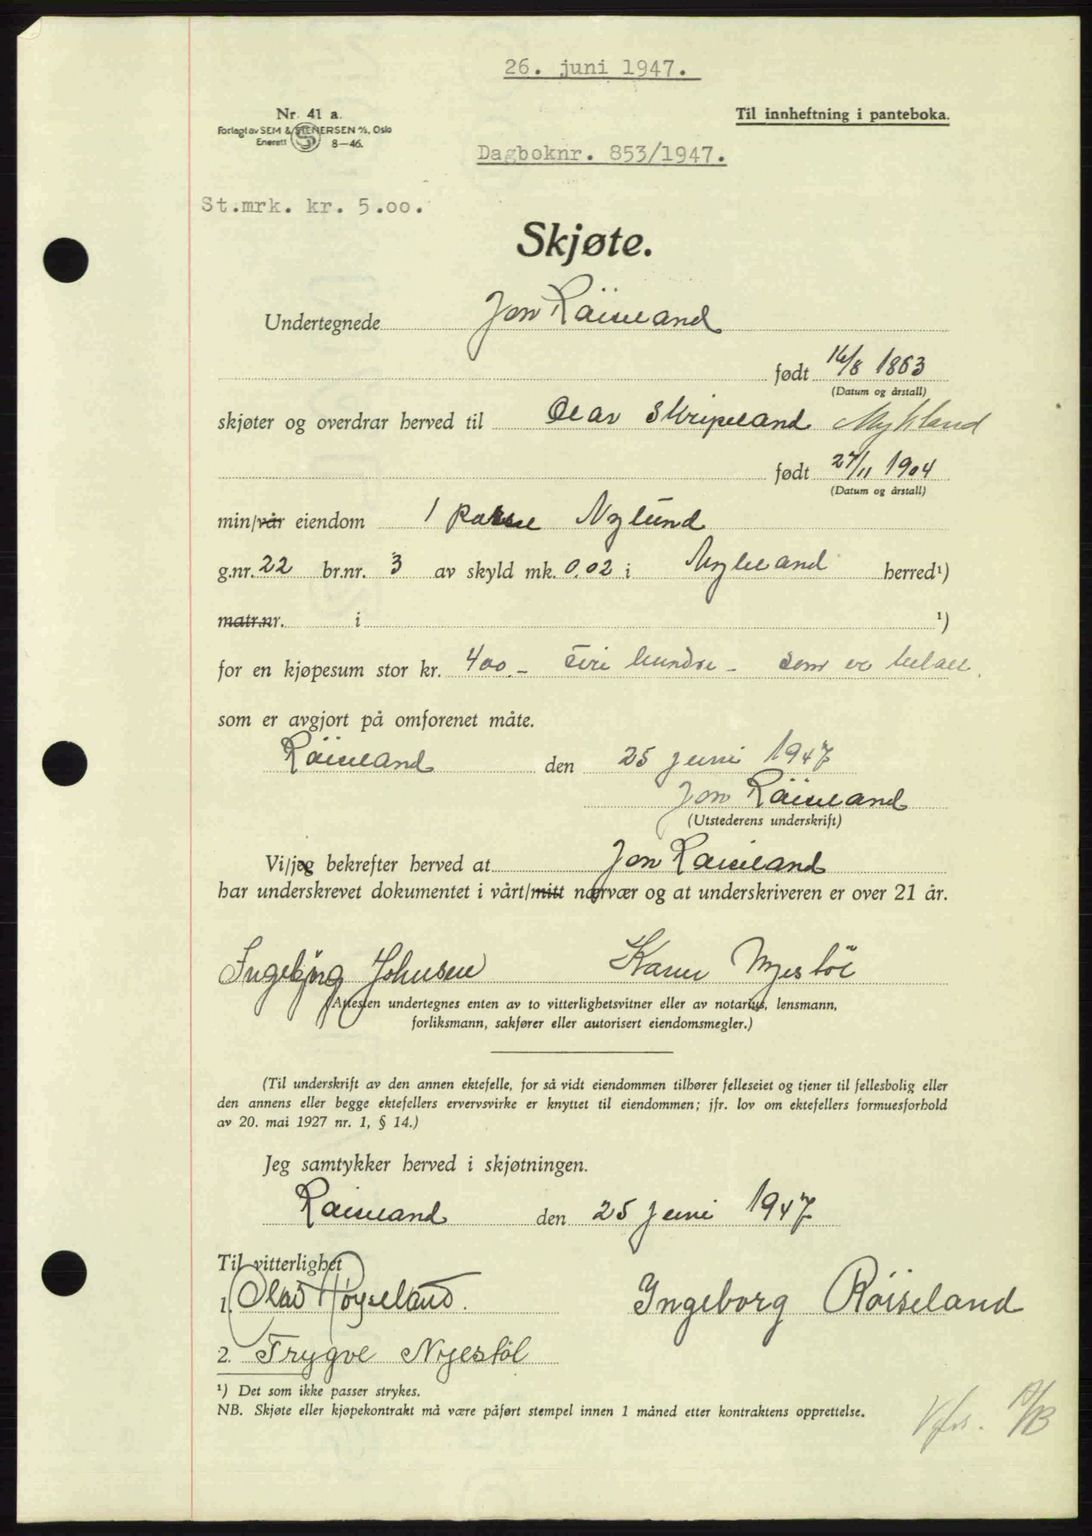 26. juni 1947.
Nr. 41 a.
Til innheftning i panteboka.
Forlagt av SEM & STENERSEN A/S, Oslo
Enerett 8-46.
Dagboknr. 853/1947.
St.mrk. kr. 5.00.
Skjøte.
Undertegnede Jon Röiseland
født 16/8 1863
(Datum og årstall)
skjøter og overdrar herved til Olav Skripeland Mykland
født 27/11 1904
(Datum og årstall)
min/vår eiendom 1 Nylund
g.nr. 22 br.nr. 3 av skyld mk. 0,02 i Mykland herred¹)
matr.nr. i ¹)
for en kjøpesum stor kr. 400.- Fire hundre - som er betalt.
som er avgjort på omforenet måte.
Röiseland den 25 juni 1947
Jon Röiseland
(Utstederens underskrift)
Vi/jeg bekrefter herved at Jon Röiseland
har underskrevet dokumentet i vårt/mitt nærvær og at underskriveren er over 21 år.
Ingebjörg Johnsen Karen Nyestöl
(Attesten undertegnes enten av to vitterlighetsvitner eller av notarius, lensmann,
forliksmann, sakfører eller autorisert eiendomsmegler.)
(Til underskrift av den annen ektefelle, for så vidt eiendommen tilhører felleseiet og tjener til fellesbolig eller
den annens eller begge ektefellers ervervsvirke er knyttet til eiendommen; jfr. lov om ektefellers formuesforhold
av 20. mai 1927 nr. 1, § 14.)
Jeg samtykker herved i skjøtningen.
Röiseland den 25 juni 1947
Til vitterlighet
1. Olav Høyseland. Ingeborg Röiseland
2. Trygve Nyestöl
¹) Det som ikke passer strykes.
NB. Skjøte eller kjøpekontrakt må være påført stempel innen 1 måned etter kontraktens opprettelse.